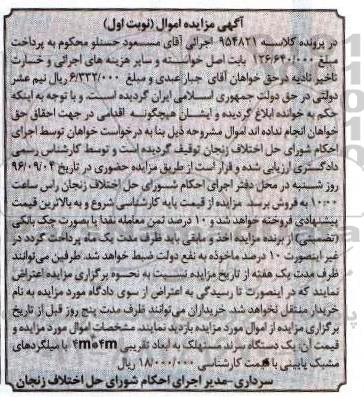 آگهی مزایده اموال (نوبت اول)
در پرونده کلاسه ۹۵۴۸۲۱ اجرائی آقای مسعود حسنلو محکوم به پرداخت
مبلغ ۱۲۶/۶۴۰/۰۰۰ بابت اصل خواسته و سایر هزینه های اجرائی و خسارت
تاخیر تادیه درحق خواهان آقای جبار عبدی و مبلغ ۶/۳۳۲/۰۰۰ ریال نیم عشر
دولتی در حق دولت جمهوری اسلامی ایران گردیده است. و با توجه به اینکه
حکم به خوانده ابلاغ گردیده و ایشان هیچگونه اقدامی در جهت احقاق حق
خواهان انجام نداده اند اموال مشروحه ذیل بنا به درخواست خواهان توسط اجرای
احکام شورای حل اختلاف زنجان توقیف گردیده است و توسط کارشناس رسمی
دادگستری ارزیابی شده و قرار است از طریق مزایده حضوری در تاریخ ۹۶/۰۹/۰۴
روز شنبه در محل دفتر اجرای احکام شورای حل اختلاف زنجان راس ساعت
۱۰:۰۰ به فروش برسد. مزایده از قیمت پایه کارشناسی شروع و به بالاترین قیمت
پیشنهادی فروخته خواهد شد و ۱۰ درصد ثمن معامله نقدا یا بصورت چک بانکی
(تضمینی) از برنده مزایده اخذ و مابقی باید ظرف مدت یک ماه پرداخت گردد در
غیر اینصورت ۱۰ درصد ماخوذه به نفع دولت ضبط خواهد شد. طرفین می‌توانند
ظرف مدت یک هفته از تاریخ مزایده نسبت به نحوه برگزاری مزایده اعتراض
نمایند که در اینصورت تا رسیدگی به اعتراض از سوی دادگاه مورد مزایده به نام
خریدار منتقل نخواهد شد. خریداران می‌توانند ظرف مدت پنج روز قبل از تاریخ
برگزاری مزایده از اموال مورد مزایده بازدید نمایند. مشخصات اموال مورد مزایده و
قیمت آن: یک دستگاه سرند مستهلک به ابعاد تقریبی با میلگردهای
مشبک پایینی با قیمت کارشناسی ۱۸/۰۰۰/۰۰۰ ریال
سرداری-مدیر اجرای احکام شورای حل اختلاف زنجان